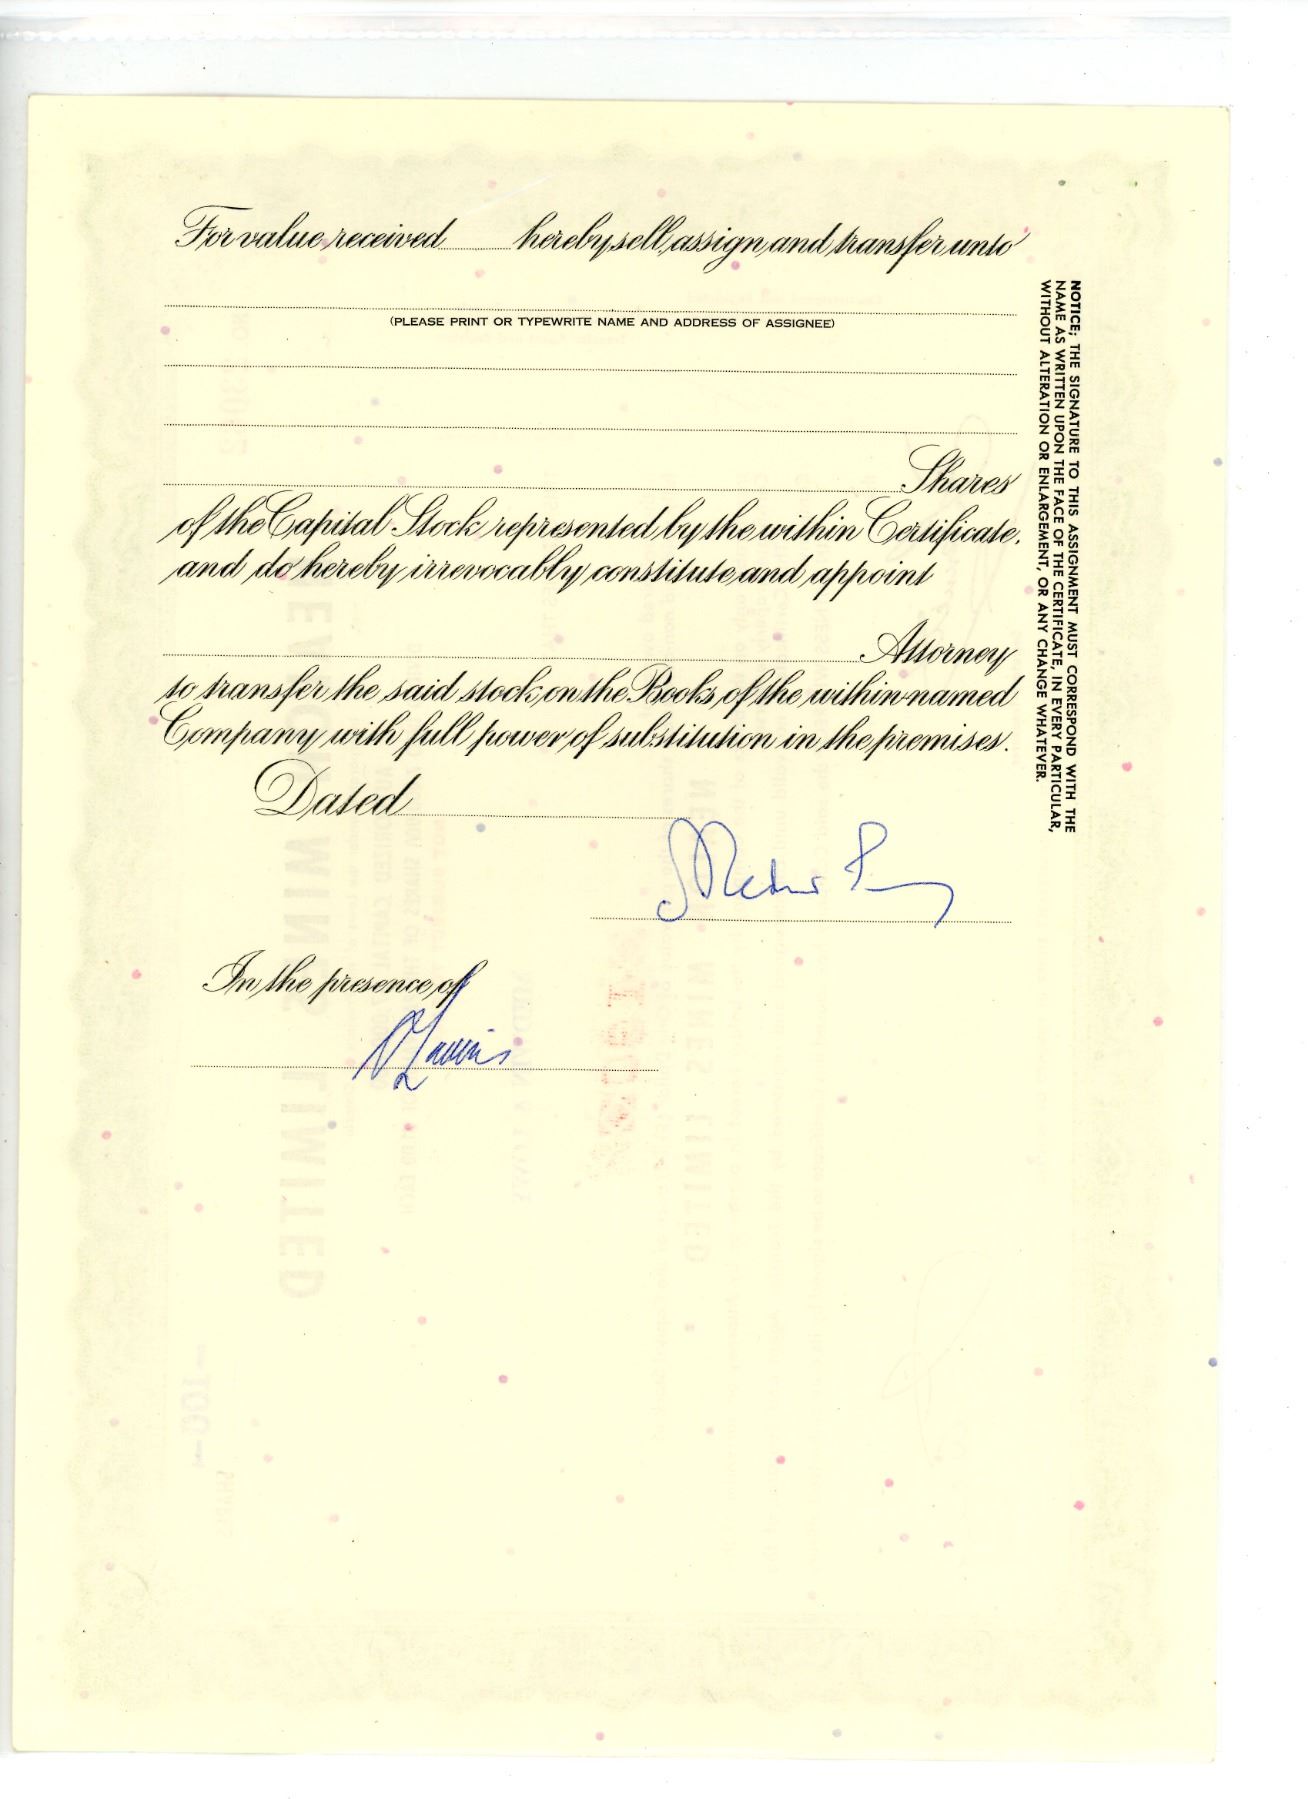 For value received hereby sell, assign and transfer unto
(PLEASE PRINT OR TYPEWRITE NAME AND ADDRESS OF ASSIGNEE)
Shares
of the Capital Stock represented by the within Certificate,
and do hereby irrevocably constitute and appoint
Attorney
to transfer the said stock on the Books of the within-named
Company with full power of substitution in the premises.
Dated
In the presence of
NOTICE; THE SIGNATURE TO THIS ASSIGNMENT MUST CORRESPOND WITH THE
NAME AS WRITTEN UPON THE FACE OF THE CERTIFICATE, IN EVERY PARTICULAR,
WITHOUT ALTERATION OR ENLARGEMENT, OR ANY CHANGE WHATEVER.